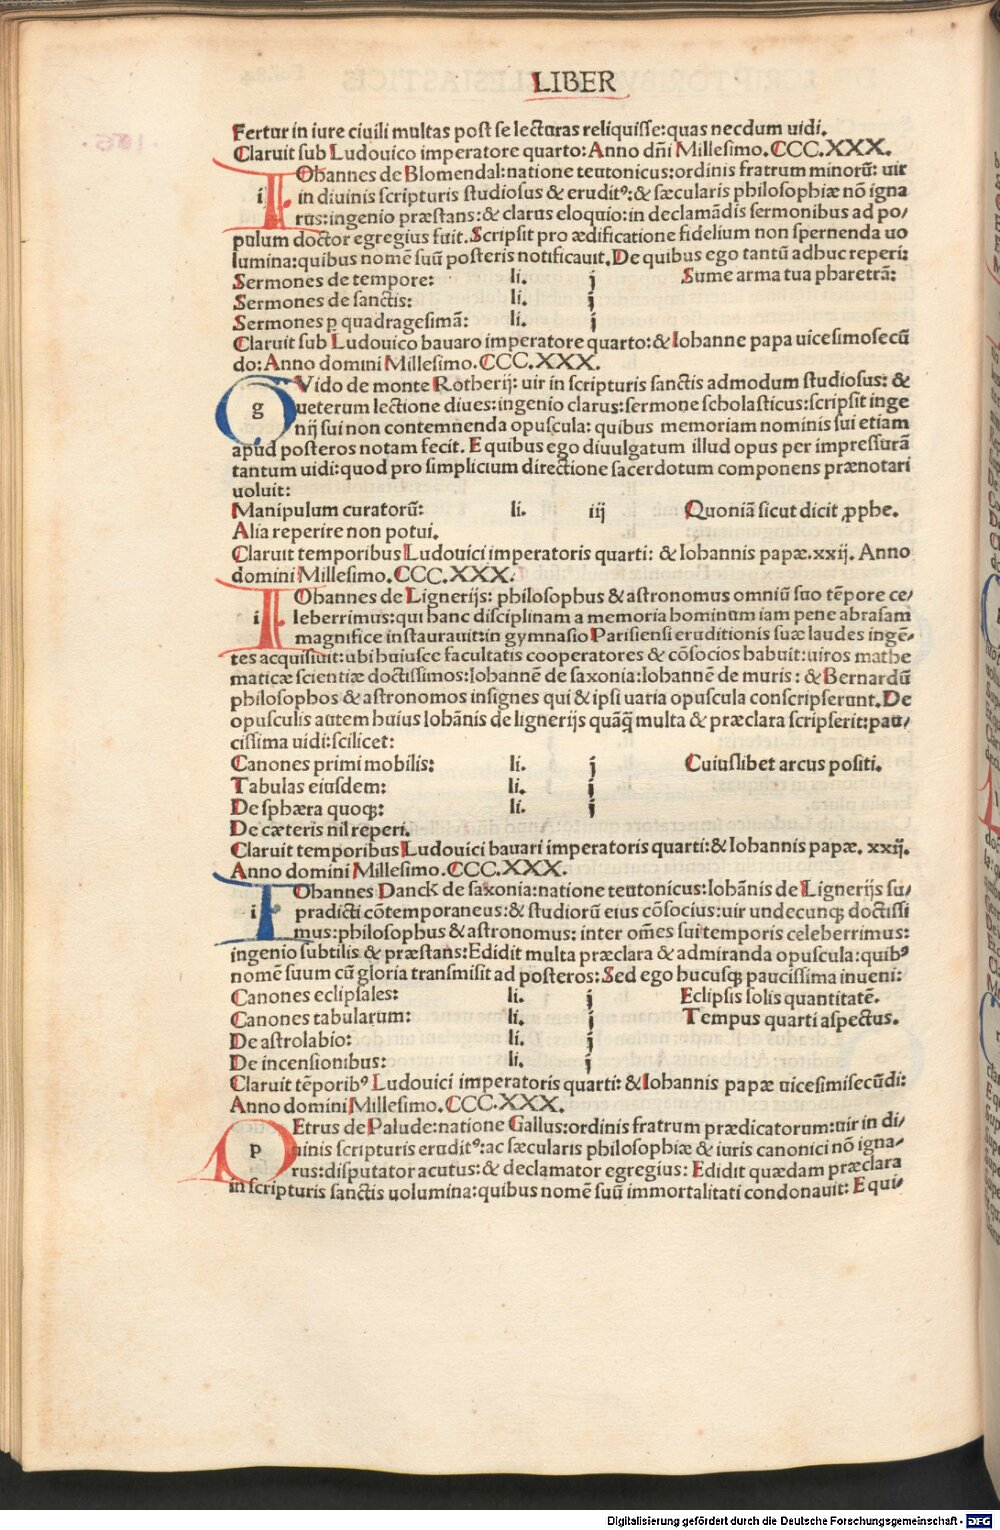 LIBER
Fertur in iure ciuili multas post se lecturas reliquisse: quas necdum uidi.
Claruit sub Ludouico imperatore quarto: Anno dñi Millesimo. CCC. XXX.
IOhannes de Blomendal: natione teutonicus: ordinis fratrum minorũ: uir
i in diuinis scripturis studiosus & eruditꝰ: & sæcularis philosophiæ nõ igna
rus: ingenio præstans: & clarus eloquio: in declamãdis sermonibus ad po/
pulum doctor egregius fuit. Scripsit pro ædificatione fidelium non spernenda uo
lumina: quibus nomẽ suũ posteris notificauit. De quibus ego tantũ adhuc reperi:
Sermones de tempore: li. j Sume arma tua pharetrã:
Sermones de sanctis: li. j
Sermones ꝑ quadragesimã: li. j
Claruit sub Ludouico bauaro imperatore quarto: & Iohanne papa uicesimosecũ
do: Anno domini Millesimo. CCC. XXX.
GVido de monte Rotherij: uir in scripturis sanctis admodum studiosus: &
g ueterum lectione diues: ingenio clarus: sermone scholasticus: scripsit inge
nij sui non contemnenda opuscula: quibus memoriam nominis sui etiam
apud posteros notam fecit. E quibus ego diuulgatum illud opus per impressurã
tantum uidi: quod pro simplicium directione sacerdotum componens prænotari
uoluit:
Manipulum curatorũ: li. iij Quoniã sicut dicit ꝓphe.
Alia reperire non potui.
Claruit temporibus Ludouici imperatoris quarti: & Iohannis papæ. xxij. Anno
domini Millesimo. CCC. XXX.
IOhannes de Lignerijs: philosophus & astronomus omniũ suo tẽpore ce/
i leberrimus: qui hanc disciplinam a memoria hominum iam pene abrasam
magnifice instaurauit: in gymnasio Parisiensi eruditionis suæ laudes ingẽ/
tes acquisiuit: ubi huiusce facultatis cooperatores & cõsocios habuit: uiros mathe
maticæ scientiæ doctissimos: Iohannẽ de saxonia: Iohannẽ de muris: & Bernardũ
philosophos & astronomos insignes qui & ipsi uaria opuscula conscripserunt. De
opusculis autem huius Iohãnis de lignerijs quãq̃ multa & præclara scripserit: pau/
cissima uidi: scilicet:
Canones primi mobilis: li. j Cuiuslibet arcus positi.
Tabulas eiusdem: li. j
De sphæra quoqꝫ: li. j
De cæteris nil reperi.
Claruit temporibus Ludouici bauari imperatoris quarti: & Iohannis papæ. xxij.
Anno domini Millesimo. CCC. XXX.
IOhannes Danck de saxonia: natione teutonicus: Iohãnis de Lignerijs su/
i pradicti cõtemporaneus: & studiorũ eius cõsocius: uir undecunqꝫ doctissi
mus: philosophus & astronomus: inter om̃es sui temporis celeberrimus:
ingenio subtilis & præstans: Edidit multa præclara & admiranda opuscula: quibꝰ
nomẽ suum cũ gloria transmisit ad posteros: Sed ego hucusqꝫ paucissima inueni:
Canones eclipsales: li. j Eclipsis solis quantitatẽ.
Canones tabularum: li. j Tempus quarti aspectus.
De astrolabio: li. j
De incensionibus: li. j
Claruit tẽporibꝰ Ludouici imperatoris quarti: & Iohannis papæ uicesimisecũdi:
Anno domini Millesimo. CCC. XXX.
PEtrus de Palude: natione Gallus: ordinis fratrum prædicatorum: uir in di/
p uinis scripturis eruditꝰ: ac sæcularis philosophiæ & iuris canonici nõ igna/
rus: disputator acutus: & declamator egregius: Edidit quædam præclara
in scripturis sanctis uolumina: quibus nomẽ suũ immortalitati condonauit: E qui/
Digitalisierung gefördert durch die Deutsche Forschungsgemeinschaft - DFG